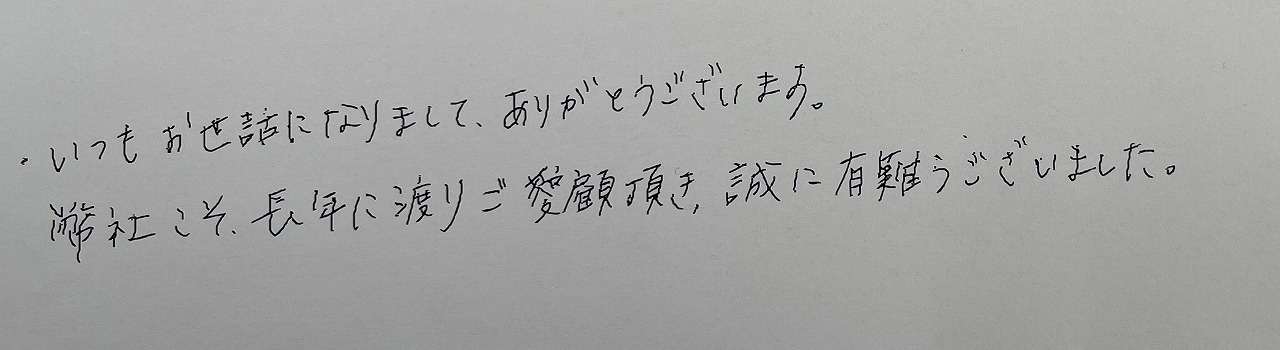 ・いつもお世話になりまして、ありがとうございます。
弊社こそ、長年に渡りご愛顧頂き、誠に有難うございました。